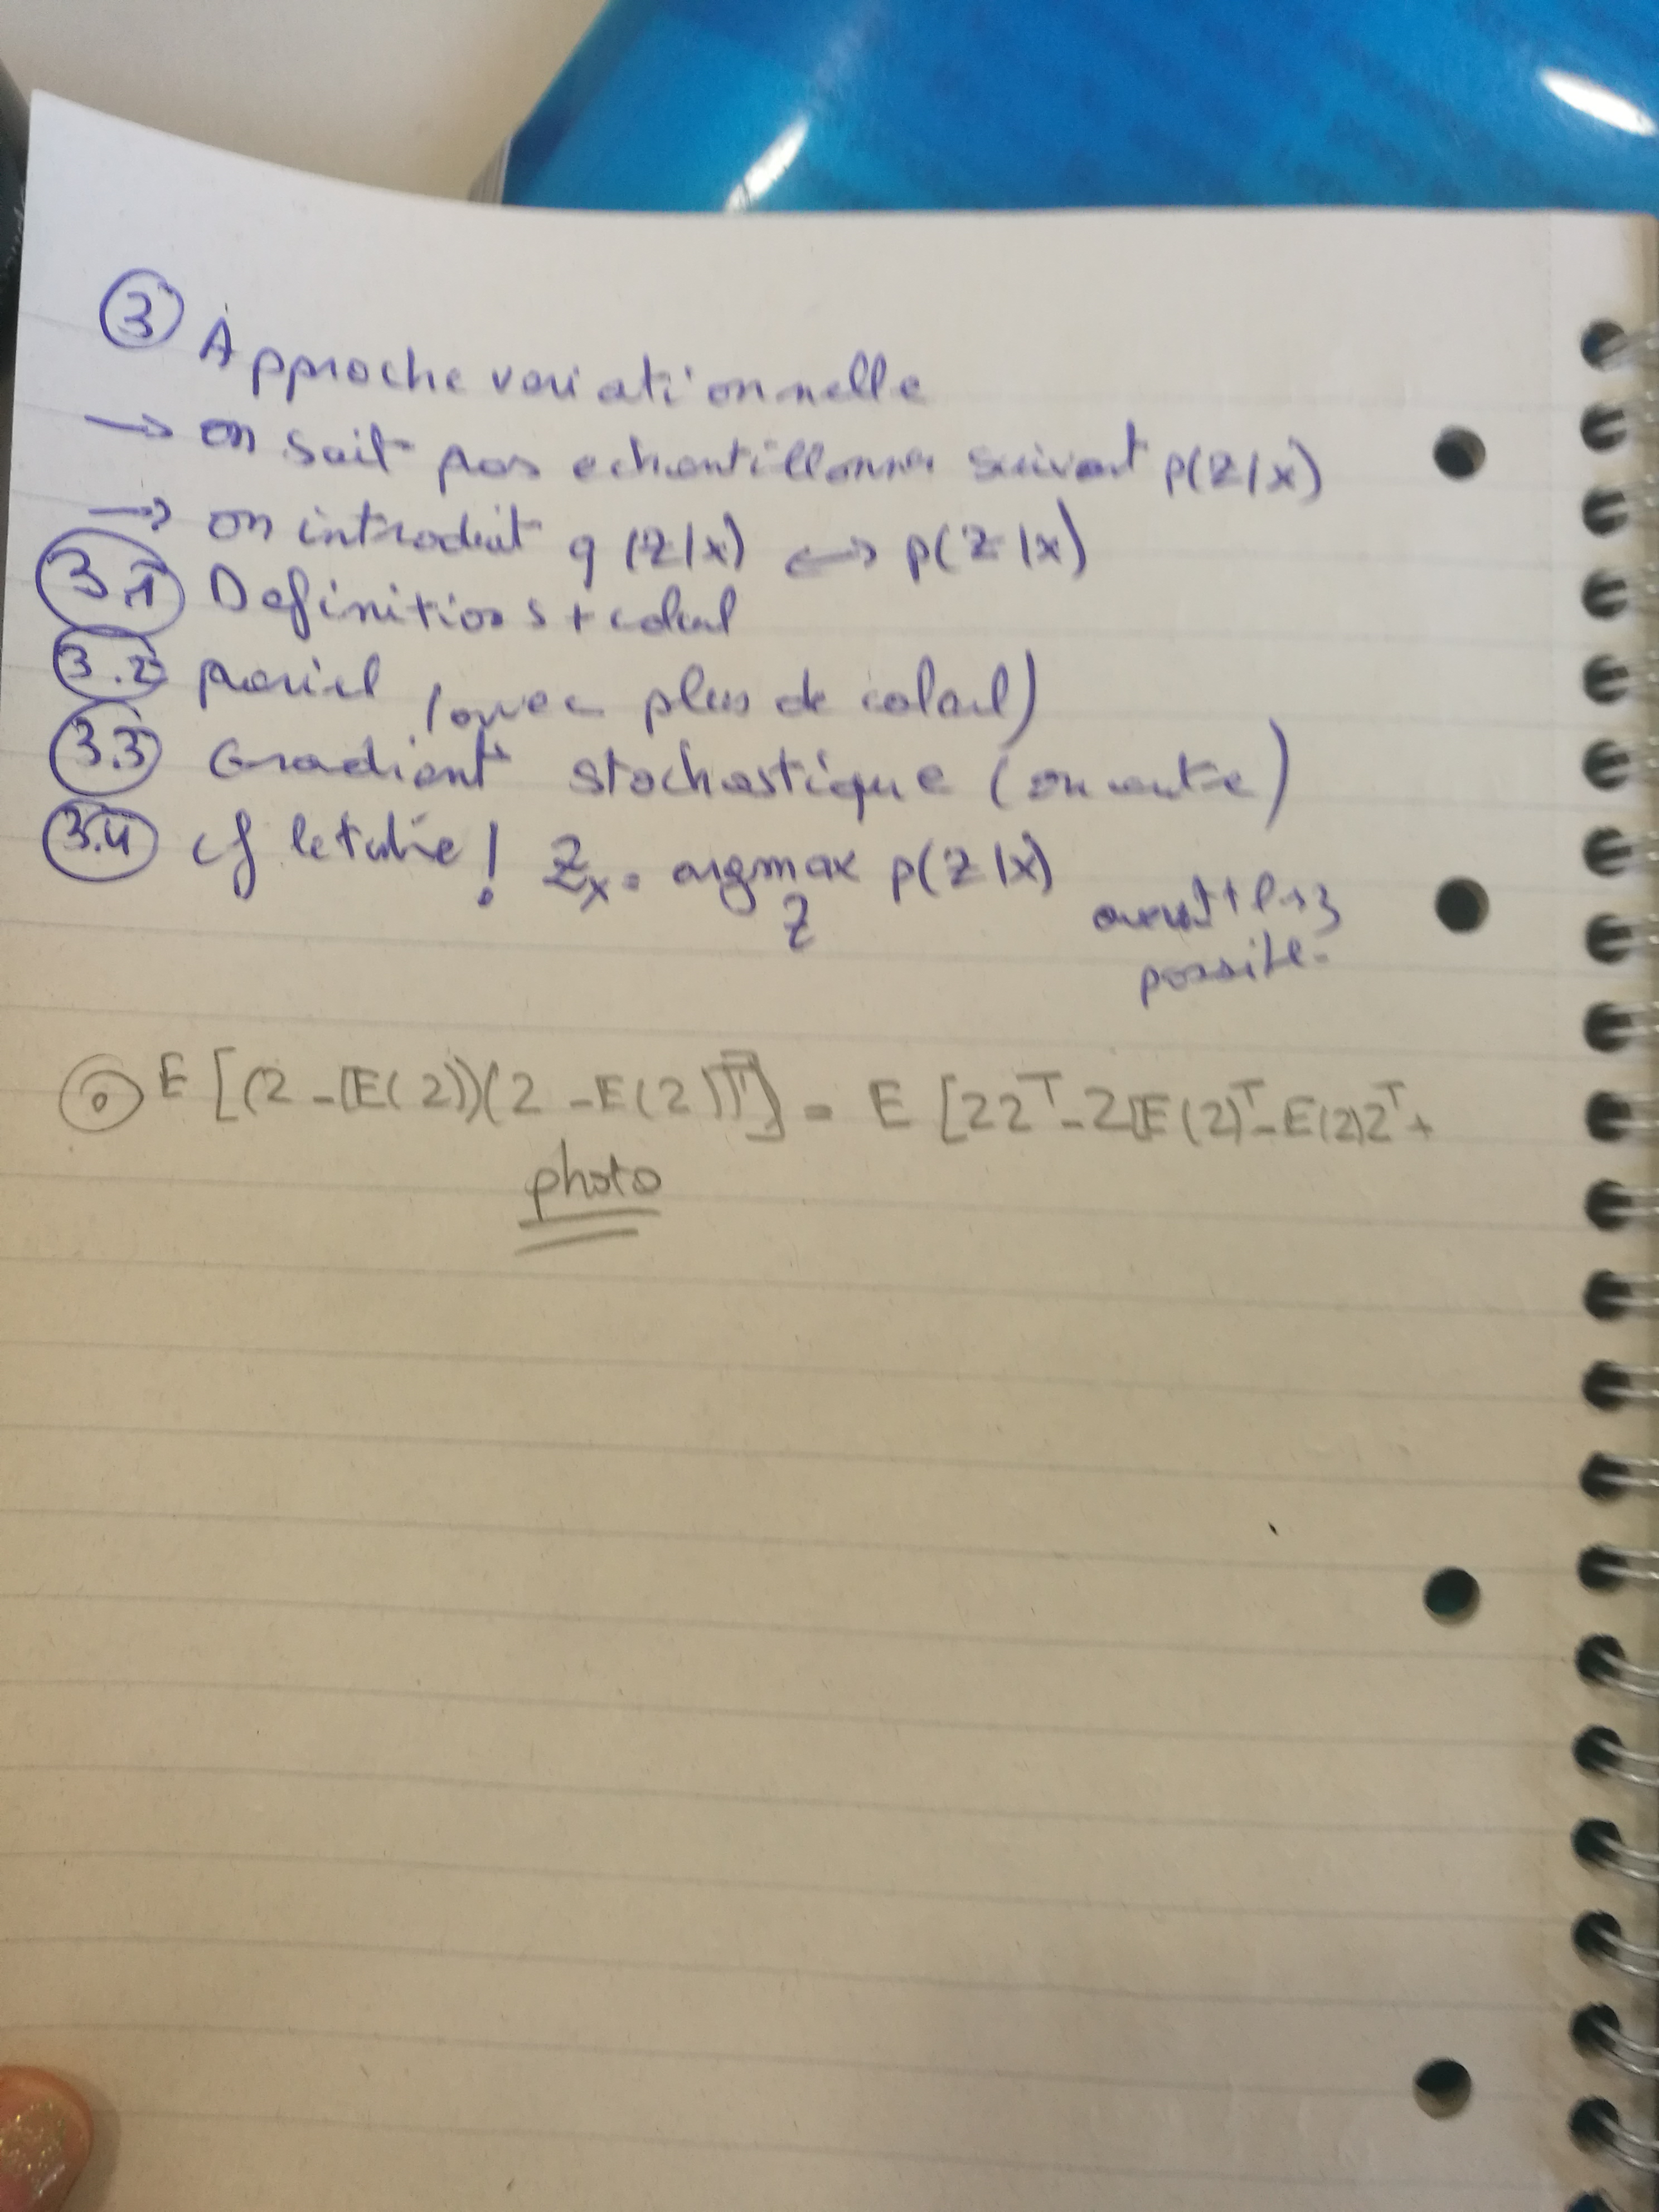 ③ Approche variationnelle
→ on sait pas echantillonner suivant p(Z|x)
→ on introduit q(Z|x) ↔ p(Z|x)
3.1 Definitions + calcul
3.2 pareil (avec plus de calcul)
3.3 Gradient stochastique (ou autre)
3.4 cf le table ! Z_x = argmax p(Z|x)
Z
possible.
⓪ E[(Z-E(Z))(Z-E(Z))ᵀ] = E[ZZᵀ-ZE(Z)ᵀ-E(Z)Zᵀ+
photo